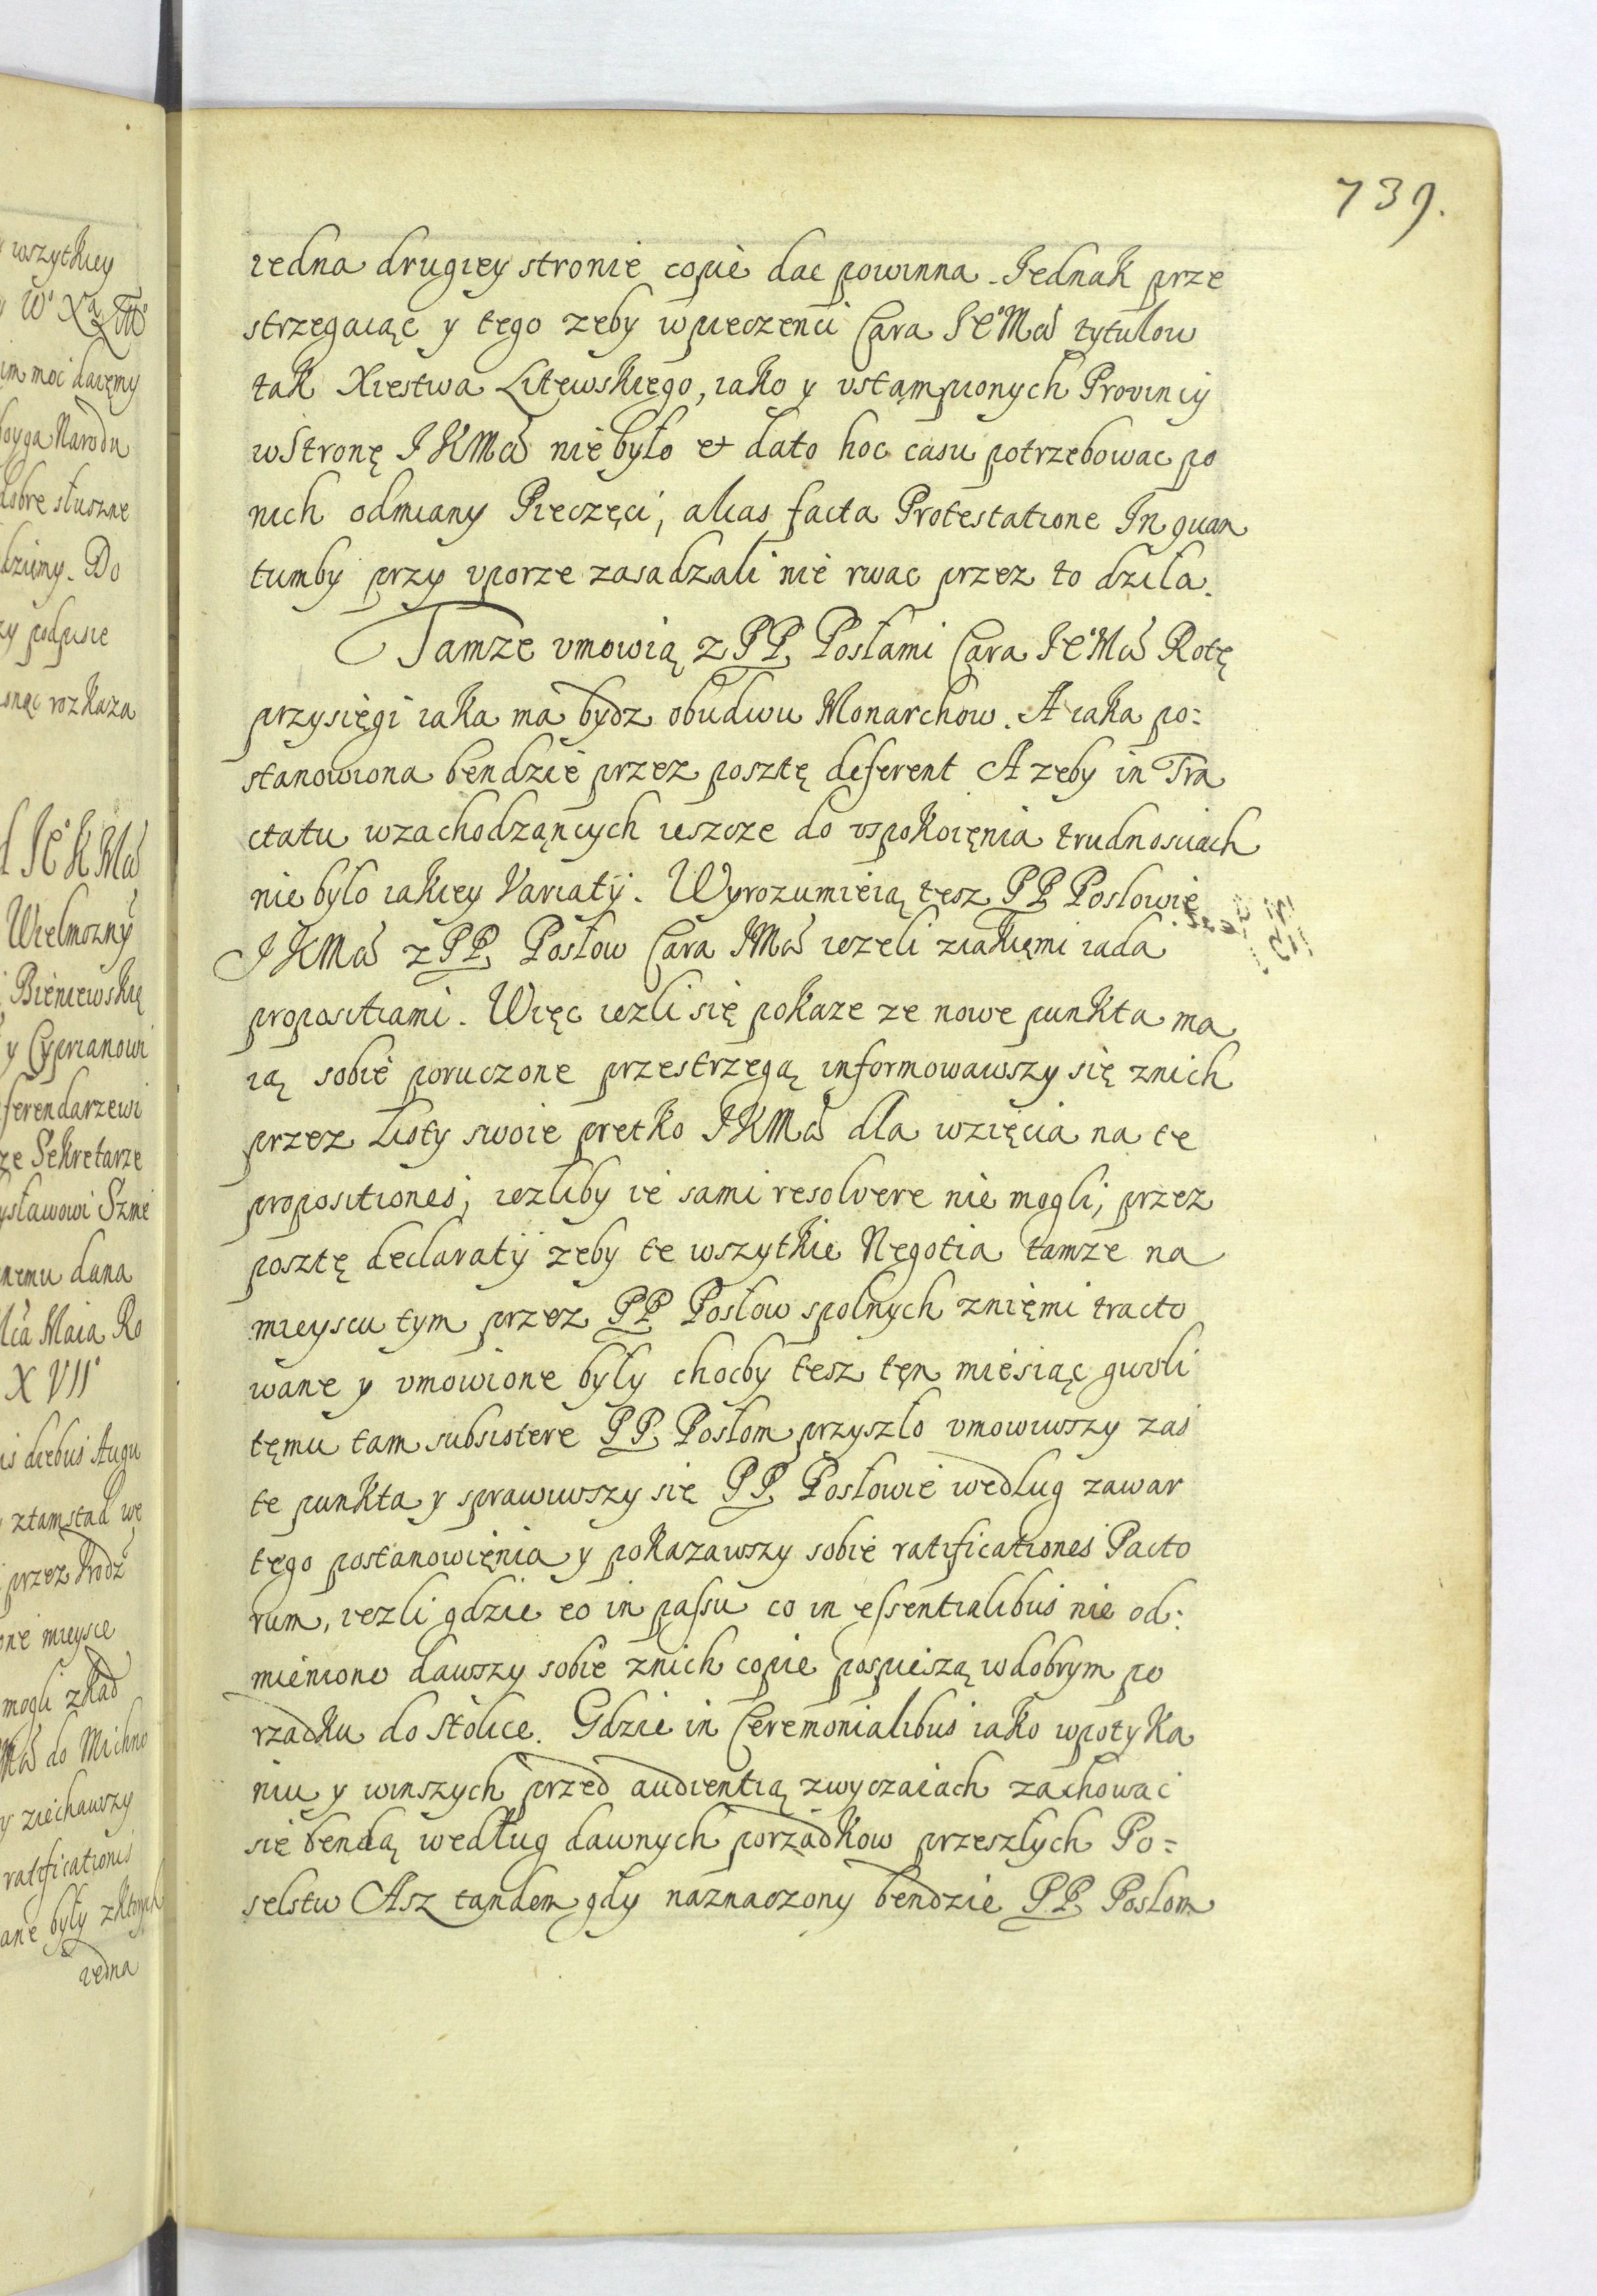 739.
wszytkiey
im moć daięmy
Narodu
dobre słuszne
Do
podpisie
rozkaza
Wielmozny
Bieniewskię
y Cyprianowi
ferendarzewi
ze Sekretarze
ysławowi
nemu dana
Maia Ro
XVII
diebus Augu
ztamstad we
przez
mieysce
mogli zkad
do Michno
y ziechawszy
ratificationes
ane były
iedna
iedna drugiey stronie copiè dac powinna. Jednak prze
strzegaiąc y tego zeby wpieczenci Cara JEº Mci tytulow
tak Xiestwa Litewskiego, iako y vstąmpionych Provinciÿ
wstronę JKMci nie było et dato hoc casu potrzebowac po
nich odmiany Pieczęci, alias facta Protestatione In quan
tumby przy vporze zasadzali nie rwac przez to dziła.
Tamze vmowią z PP. Posłami Cara JEº Mci Rotę
przysięgi iaka ma bydz obudwu Monarchow. A iaka po=
stanowiona bendzie przez posztę deferent A zeby in Tra
ctatu wzachodząncych ieszcze do vspokoięnia trudnosciach
nie bylo iakiey Variatÿ. Wyrozumieią tesz PP. Poslowie
JKMci z PP. Posłow Cara JMci iezeli ziakięmi iada
propositiami. Więc iezli się pokaze ze nowe punkta ma
ią sobie poruczone przestrzegą informowawszy się znich
przez Listy swoie pretko JKMci dla wzięcia na te
propositiones, iezliby ie sami resolvere nie mogli, przez
posztę declaratÿ zeby te wszytkie Negotia tamze na
mieyscu tym przez PP Posłow spolnych znięmi tracto
wane y vmowione były chocby tesz tęn miesiąc gwoli
tęmu tam subsistere PP. Posłom przyszło vmowiwszy zas
te punkta y sprawiwszy się PP. Posłowie według zawar
tego postanowięnia y pokazawszy sobie ratificationes Pacto
rum, iezli gdzie eo in passu co in essentialibus nie od=
mieniono dawszy sobie znich copie pospieszą wdobrym po
rzadku do stolice. Gdzie in Ceremonialibus iako wpotyka
niu y winszych przed audientią zwyczaiach zachowac
się bendą według dawnych porzadkow przeszłych Po=
selstw Asz tandem gdy naznaczony bendzie PP. Posłom